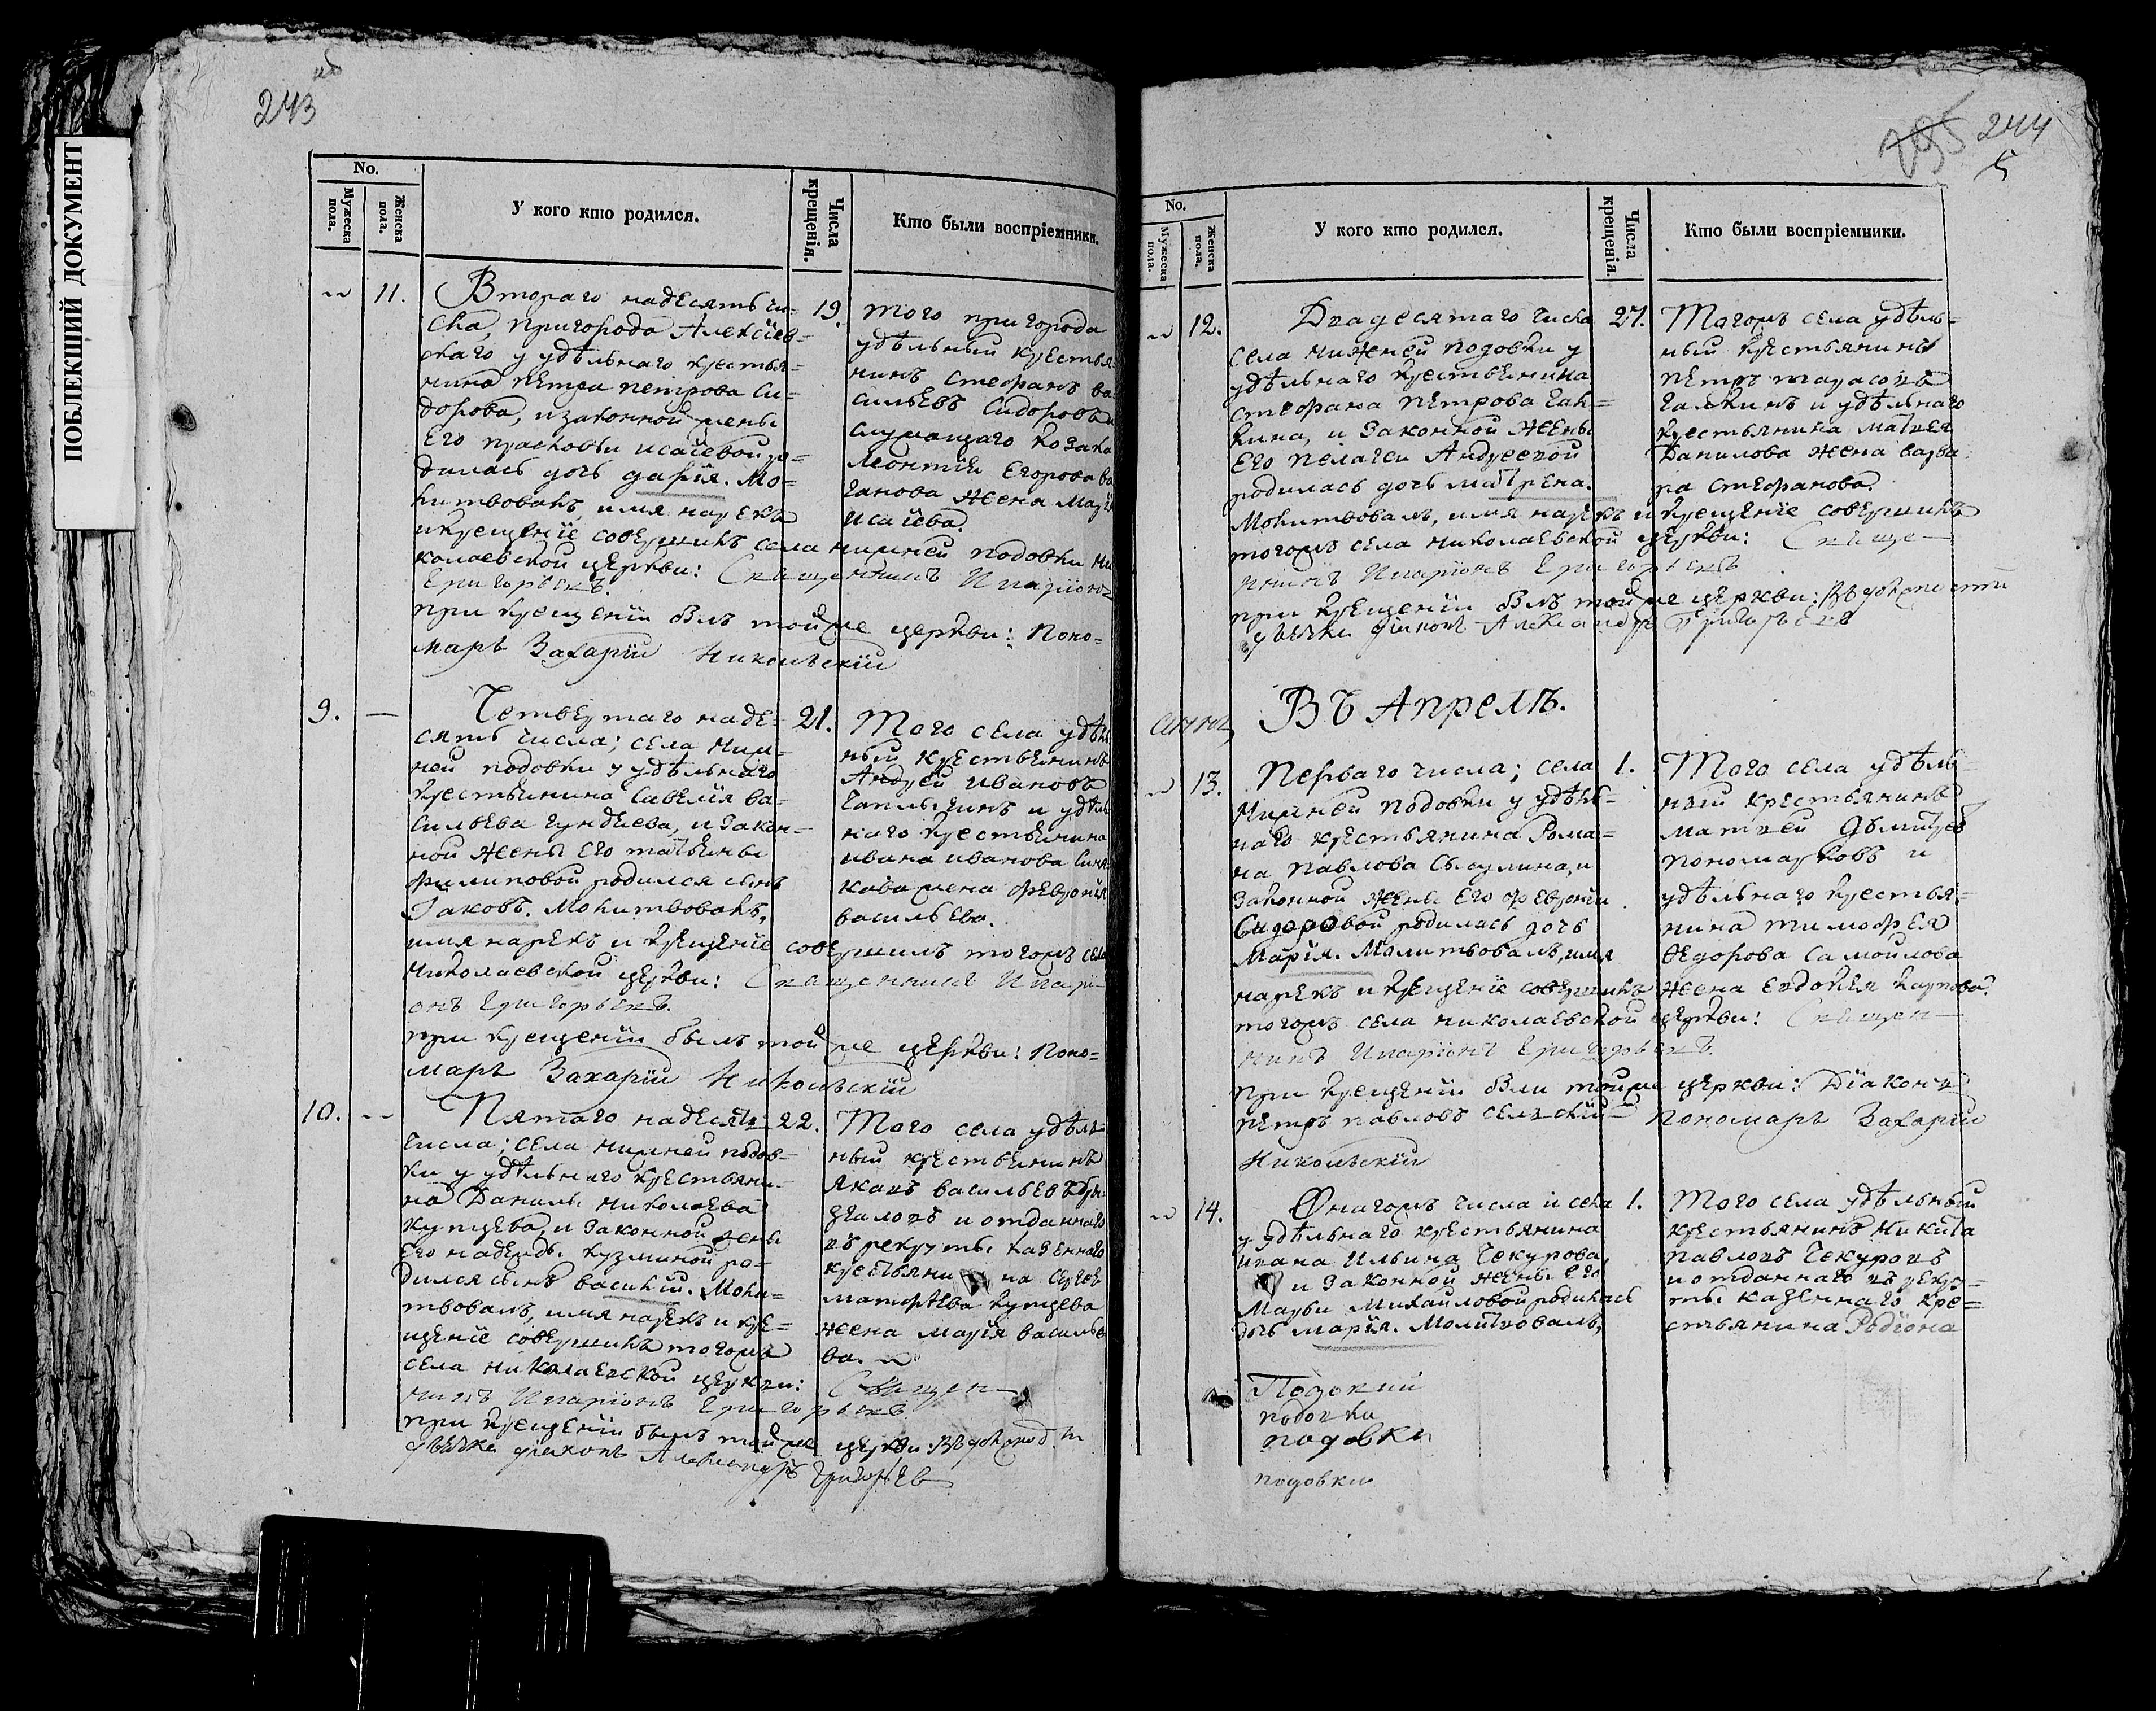 ПОБЛЕКШИЙ ДОКУМЕНТ
243
об
No.
Мужеска пола.
Женска пола.
У кого кто родился.
Числа крещенія.
Кто были воспріемники.
11.
Втораго надесять чи-
сла, пригорода Алексіев-
скаго у удѣльнаго крестья-
нина петра петрова Си-
дорова, и законной жены
Его прасковьи исаіевой ро-
дилась дочь дарія. Мо-
литвовалъ, имя нарекъ
и крещеніе совершилъ села нижней подовки Ни
колаевской церкви: Священникъ Иларіонъ
Григорьевъ.
при крещеніи былъ той же церкви: Поно-
марь Захарій Никольскій
19.
того пригорода
удѣльный крестья
нинъ Стефанъ ва
сильевъ Сидоровъ и
служащаго козака
Леонтія Егорова
жена Марія
Исаіева.
9.
Четвертаго наде-
сять числа; села Ниж-
ней подовки у удѣльнаго
крестьянина Савелія ва-
сильева гундиева, и закон-
ной жены его татьяны
филиповой родился сынъ
Іаковъ. Молитвовалъ,
имя нарекъ и крещеніе совершилъ тогожъ села
Николаевской церкви: Священникъ Иларі-
онъ Григорьевъ.
при крещеніи былъ той же церкви: Поно-
марь Захарій Никольскій
21.
Того села удѣль
ный крестьянинъ
Андрей Ивановъ
и удѣль
наго крестьянина
ивана иванова
жена Феврониія
васильева.
10.
Пятаго надесять
числа; села нижней подов-
ки у удѣльнаго крестьяни-
на Данилы Николаева
купцева, и законной жены
Его надежды кузминой ро-
дился сынъ василій. Моли-
твовалъ, имя нарекъ и кре-
щеніе совершилъ тогожъ
села николаевской церкви: Священ-
никъ Иларіонъ Григорьевъ.
при крещеніи былъ той же церкви въ должности
дьячка діаконъ Александръ Григорьевъ
22.
Того села удѣль-
ный крестьянинъ
Яковъ васильевъ
и отданнаго
въ рекруты казеннаго
крестьянина Сергея
матфѣева купцева
жена марія василье
ва.
244
5
No.
Мужеска пола.
Женска пола.
У кого кто родился.
Числа крещенія.
Кто были воспріемники.
12.
Двадесятаго числа
села нижней подовки у
удѣльнаго крестьянина
стефана петрова гал-
кина, и законной жены
Его пелагеи Андреевой
родилась дочь матрена.
Молитвовалъ, имя нарекъ и крещеніе совершилъ
тогожъ села николаевской церкви: Священ-
никъ Иларіонъ Григорьевъ
при крещеніи былъ той же церкви: въ должности
дьячка діаконъ Александръ Григорьевъ
27.
Тогожъ села удѣль-
ный крестьянинъ
петръ тарасовъ
галкинъ и удѣльнаго
крестьянина матвея
Данилова жена варва-
ра стефанова.
Въ Апрелѣ.
13.
Перваго числа; села
Нижней подовки у удѣль-
наго крестьянина Рома-
на павлова и
законной жены его февроніи
Сидоровой родилась дочь
Марія. Молитвовалъ, имя
нарекъ и крещеніе совершилъ
тогожъ села николаевской церкви: Священ-
никъ Иларіонъ Григорьевъ.
при крещеніи были той же церкви: Діаконъ
петръ павловъ сельскій Пономарь Захарій
Никольскій
1.
Того села удѣль-
ный крестьянинъ
матвей Дьмитріев
пономарковъ и
удѣльнаго крестья-
нина тимофея
Ѳедорова Самойлова
жена Евдокія карпова.
14.
Онагожъ числа и села
у удѣльнаго крестьянина
ивана Ильина Чекурова
и законной жены его
Марьи Михайловой родилась
дочь марія. Молитвовалъ,
1.
Того села удѣльный
крестьянинъ Никита
павловъ Чекуровъ
и отданнаго въ рекру-
ты казеннаго кре-
стьянина Родіона
подовки
подовки